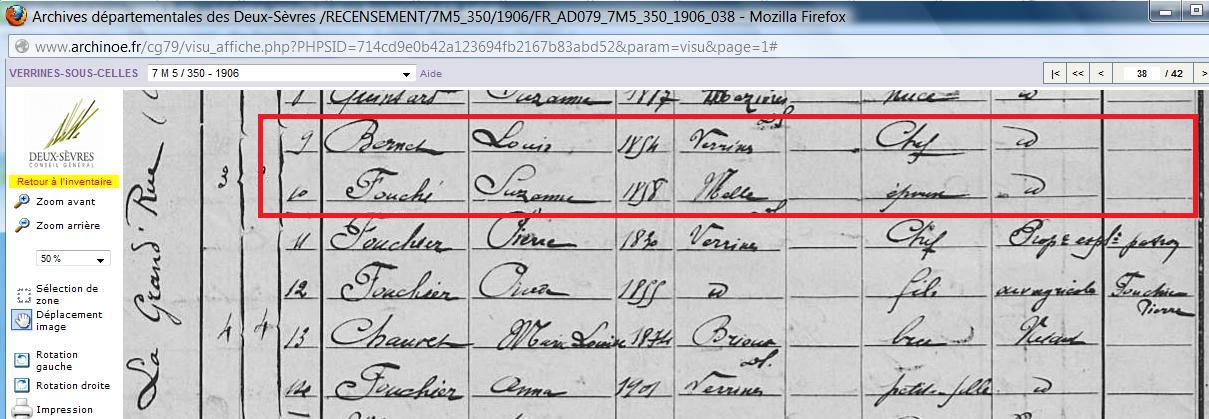 Archives départementales des Deux-Sèvres /RECENSEMENT/7M5_350/1906/FR_AD079_7M5_350_1906_038 - Mozilla Firefox
www.archinoe.fr/cg79/visu_affiche.php?PHPSID=714cd9e0b42a123694fb2167b83abd52&param=visu&page=1#
VERRINES-SOUS-CELLES 7 M 5 / 350 - 1906 Aide |< << < 38 / 42 >
DEUX-SÈVRES
CONSEIL GÉNÉRAL
Retour à l'inventaire
Zoom avant
Zoom arrière
50 %
Sélection de
zone
Déplacement
image
Rotation
gauche
Rotation droite
Impression
La Grand'Rue
8 Suzanne 1887 Mazières
9 Bernet Louis 1854 Verrines Chef d
10 Fouché Suzanne 1858 Melle épouse d
11 Fouchier Pierre 1830 Verrines Chef Propre explt patron
4 4 12 Fouchier 1855 d fils ouv agricole Fouchier
Pierre
13 Chauvet Marie Louise 1874 Brioux bru Néant
14 Fouchier Anna 1901 Verrines petite-fille d